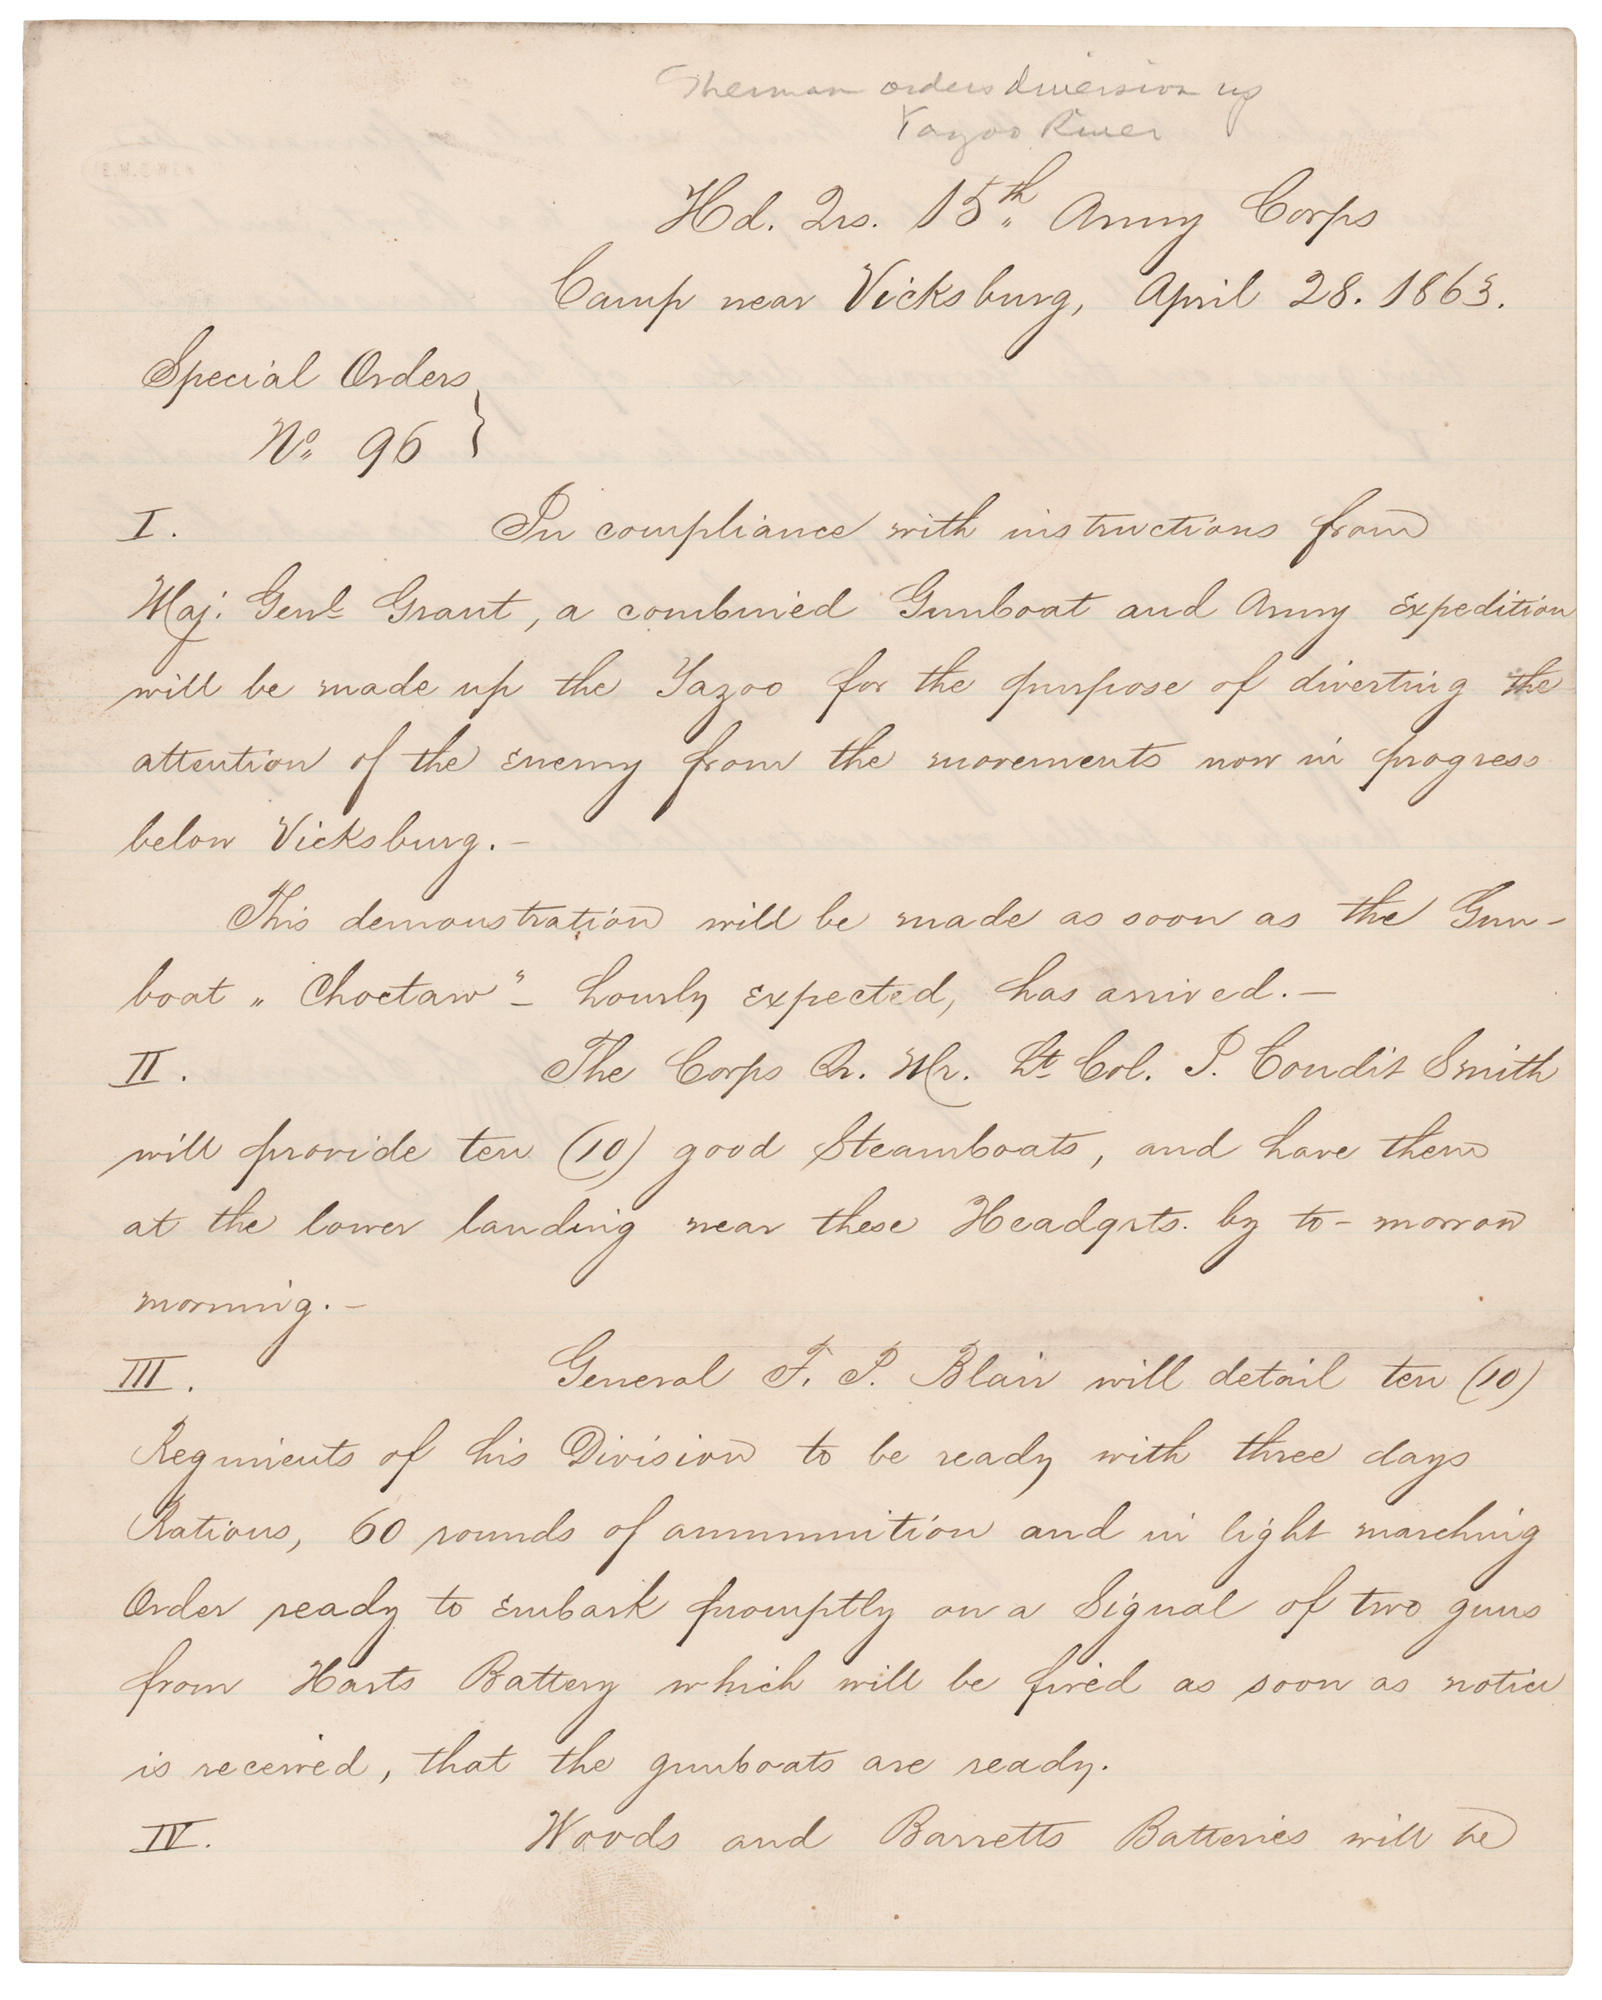 Sherman orders diversion up
Yazoo River
Hd. Qrs. 15th Army Corps
Camp near Vicksburg, April 28. 1863.
Special Orders
No. 96 }
I. In compliance with instructions from
Maj. Genl. Grant, a combined Gunboat and Army Expedition
will be made up the Yazoo for the purpose of diverting the
attention of the Enemy from the movements now in progress
below Vicksburg. –
This demonstration will be made as soon as the Gun-
boat „Choctaw" – hourly expected, has arrived. –
II. The Corps Qr. Mr. Lt. Col. J. Condit Smith
will provide ten (10) good Steamboats, and have them
at the lower landing near these Headqrts. by to-morrow
morning. –
III. General F. P. Blair will detail ten (10)
Regiments of his Division to be ready with three days
Rations, 60 rounds of ammunition and in light marching
Order ready to Embark promptly on a Signal of two guns
from Harts Battery which will be fired as soon as notice
is received, that the gunboats are ready.
IV. Woods and Barretts Batteries will be